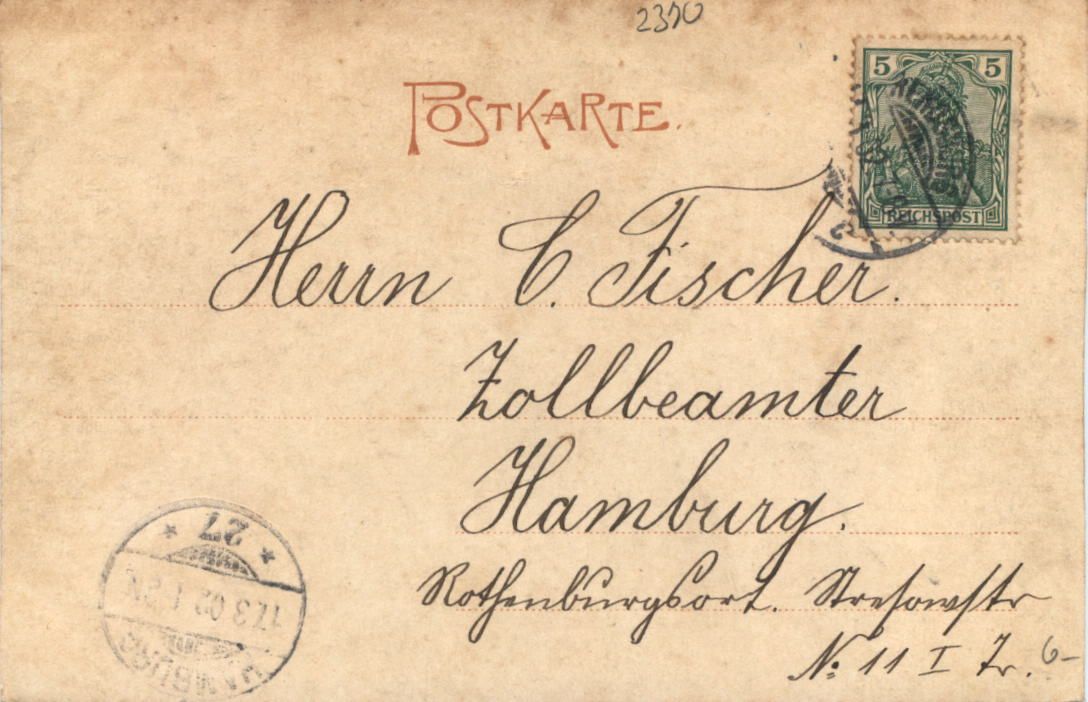 2370
POSTKARTE.
5 5
REICHSPOST
Herrn C. Fischer.
Zollbeamter
Hamburg.
Rothenburgsort. Stresowstr
No: 11 I Tr. 6-
27
17.3.02
HAMBURG